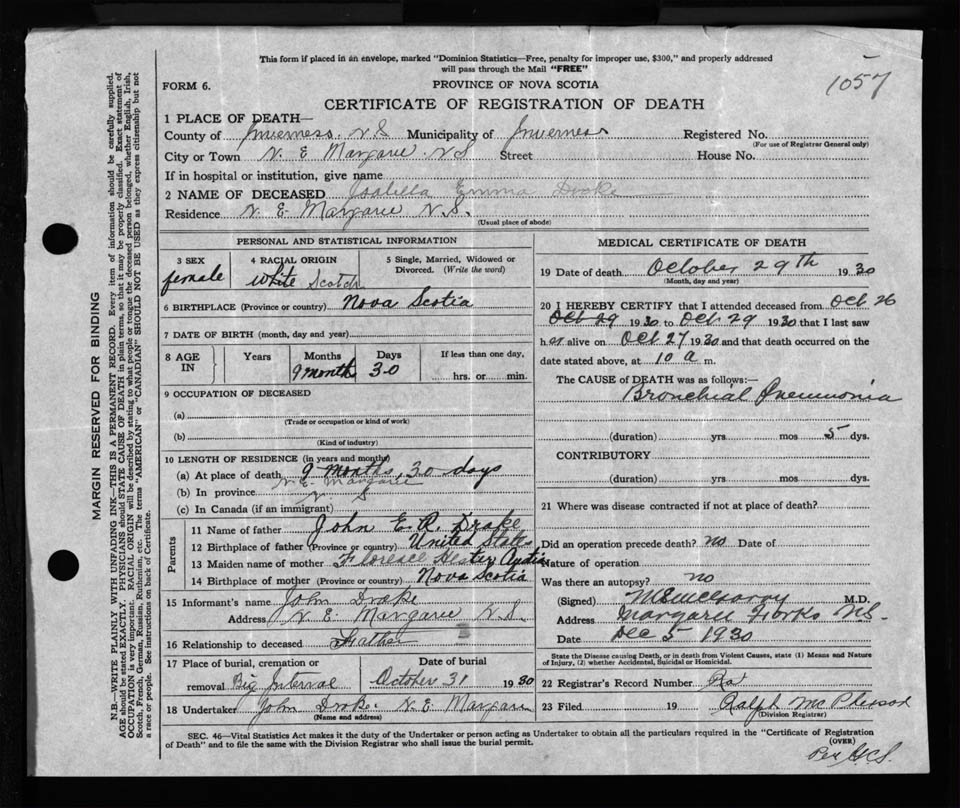 This form if placed in an envelope, marked "Dominion Statistics—Free, penalty for improper use, $300," and properly addressed
will pass through the Mail "FREE"
1057
FORM 6.
PROVINCE OF NOVA SCOTIA
CERTIFICATE OF REGISTRATION OF DEATH
1 PLACE OF DEATH—
County of Inverness N S Municipality of Inverness Registered No.
(For use of Registrar General only)
City or Town N. E Margaree N S Street House No.
If in hospital or institution, give name
2 NAME OF DECEASED Isabella Emma Drake
Residence N. E Margaree N. S.
(Usual place of abode)
PERSONAL AND STATISTICAL INFORMATION
3 SEX 4 RACIAL ORIGIN 5 Single, Married, Widowed or
Divorced. (Write the word)
female white Scotch
6 BIRTHPLACE (Province or country) Nova Scotia
7 DATE OF BIRTH (month, day and year)
8 AGE IN Years Months Days If less than one day,
9 month 30 hrs. or min.
9 OCCUPATION OF DECEASED
(a)
(Trade or occupation or kind of work)
(b)
(Kind of industry)
10 LENGTH OF RESIDENCE (in years and months)
(a) At place of death 9 months, 30 days
N. E. Margaree
(b) In province N S
(c) In Canada (if an immigrant)
Parents
11 Name of father John E. R. Drake
12 Birthplace of father (Province or country) United States
13 Maiden name of mother Florence Hester
14 Birthplace of mother (Province or country) Nova Scotia
15 Informant's name John Drake
Address N. E Margaree N. S.
16 Relationship to deceased Father
17 Place of burial, cremation or Date of burial
removal Big Interval October 31 1930
18 Undertaker John Drake. N. E Margaree
(Name and address)
MEDICAL CERTIFICATE OF DEATH
19 Date of death October 29th 1930
(Month, day and year)
20 I HEREBY CERTIFY that I attended deceased from Oct 26
Oct 29 1930 to Oct 29 1930 that I last saw
her alive on Oct 27 1930 and that death occurred on the
date stated above, at 10 a m.
The CAUSE OF DEATH was as follows:—
Bronchial Pneumonia
(duration) yrs mos 5 dys.
CONTRIBUTORY
(duration) yrs. mos. dys.
21 Where was disease contracted if not at place of death?
Did an operation precede death? no Date of
Nature of operation
Was there an autopsy? no
(Signed) M.D.
Address Margaree Forks N.S.
Date Dec 5 1930
State the Disease causing Death, or in death from Violent Causes, state (1) Means and Nature
of Injury, (2) whether Accidental, Suicidal or Homicidal.
22 Registrar's Record Number
23 Filed 19 Ralph McPherson
(Division Registrar)
SEC. 46—Vital Statistics Act makes it the duty of the Undertaker or person acting as Undertaker to obtain all the particulars required in the "Certificate of Registration
of Death" and to file the same with the Division Registrar who shall issue the burial permit.
(OVER)
Per
MARGIN RESERVED FOR BINDING
N.B.—WRITE PLAINLY WITH UNFADING INK—THIS IS A PERMANENT RECORD. Every item of information should be carefully supplied.
AGE should be stated EXACTLY. PHYSICIANS should STATE CAUSE OF DEATH in plain terms, so that it may be properly classified. Exact statement of
OCCUPATION is very important. RACIAL ORIGIN will be described by stating to what people or tongue the deceased person belonged, whether English, Irish,
Scotch, French, German, Russian, Ruthenian, etc. The terms "AMERICAN" or "CANADIAN" SHOULD NOT BE USED as they express citizenship but not
a race or people. See instructions on back of Certificate.